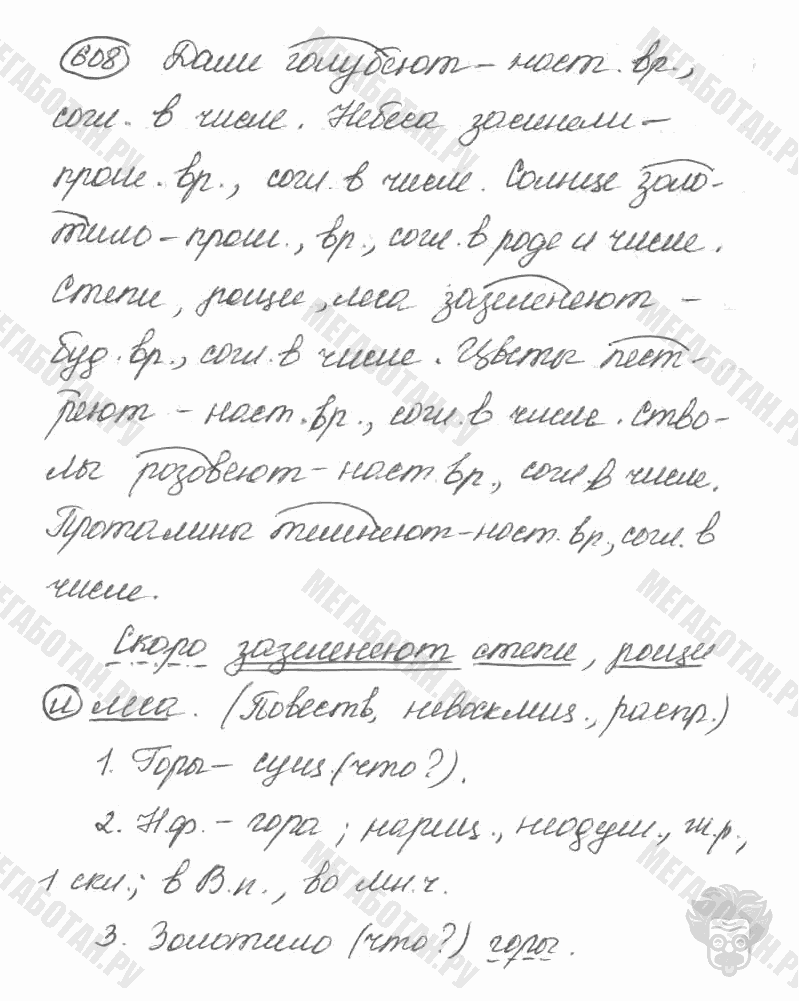 608 Дали голубеют – наст. вр.,
согл. в числе. Небеса засинели –
прош. вр., согл. в числе. Солнце золо-
тило – прош., вр., согл. в роде и числе.
Степи, рощи, леса зазеленеют –
буд. вр., согл. в числе. Цветы пест-
реют – наст. вр., согл. в числе. Ство-
лы розовеют – наст. вр., согл. в числе.
Проталины темнеют – наст. вр., согл. в
числе.
Скоро зазеленеют степи, рощи
и леса. (Повеств., невосклиц., распр.)
1. Горы – сущ. (что?).
2. Н.ф. – гора; нариц., неодуш., ж.р.,
1 скл.; в В.п., во мн.ч.
3. Золотило (что?) горы.
МЕГАБОТАН.РУ